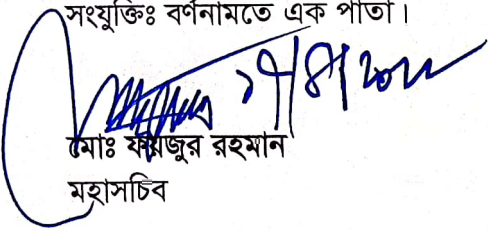 সংযুক্তিঃ বর্ণনামতে এক পাতা।
মোঃ ফায়জুর রহমান
মহাসচিব